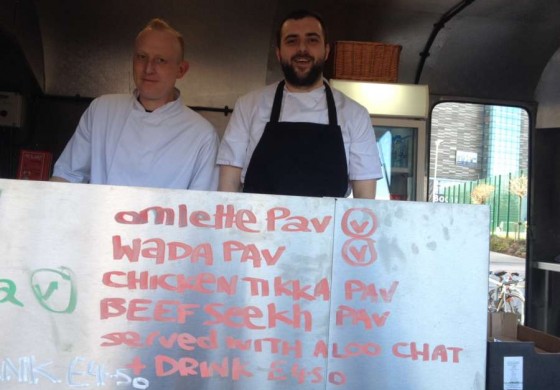 omlette Pav V
WADA PAV V
CHICKEN TIKKA PAV
a V
BEEF Seekh PAV
served WITH ALOO CHAT
+ DRINK £4.50
NK £4.50